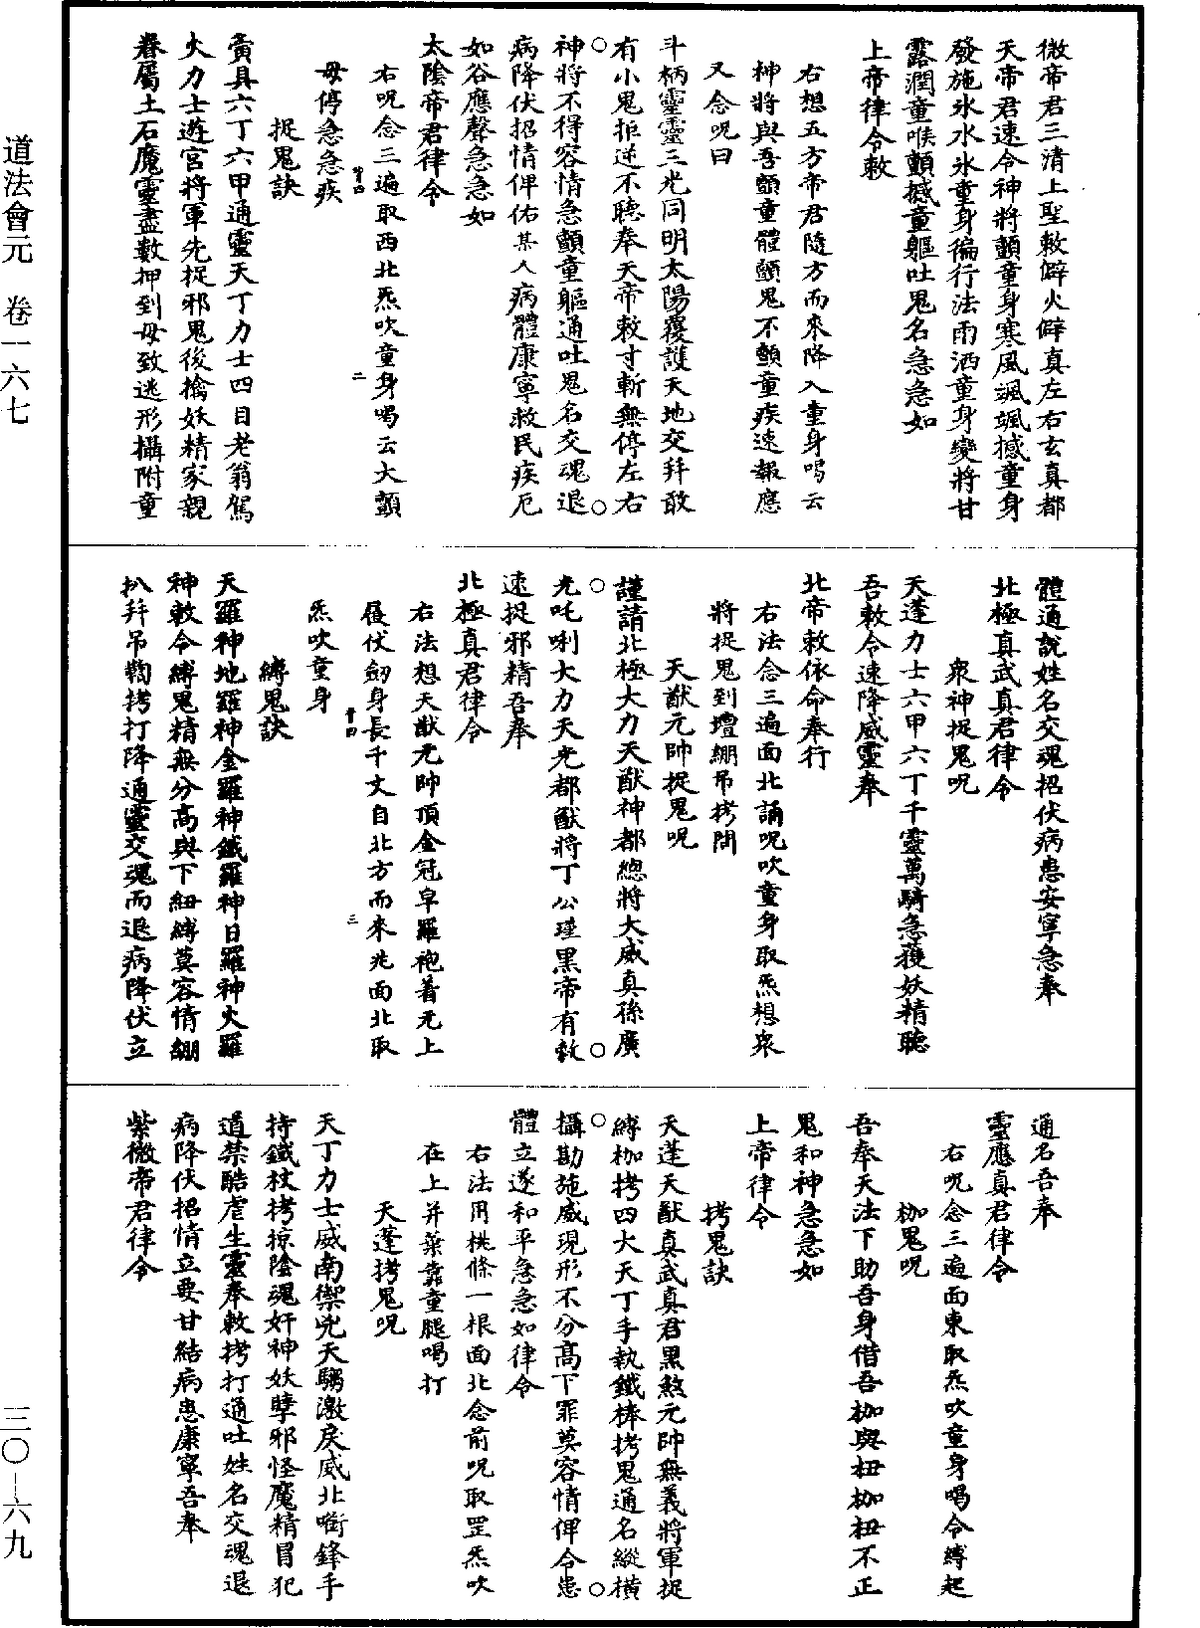 微帝君三清上聖敕僻火僻真左右玄真都
天帝君速令神將顫童身寒風颯颯撼童身
發施水水氷童身徧行法雨洒童身變將甘
露潤童喉顫撼童軀吐鬼名急急如
上帝律令敕
右想五方帝君隨方而來降入童身喝云
神將與吾顫童體顫鬼不顫童疾速報應
又念呪曰
斗柄靈靈三光同明太陽覆護天地交拜敢
有小鬼拒逆不聽奉天帝敕寸斬無停左右
神將不得容情急顫童軀通吐鬼名交魂退
病降伏招情俾佑某人病體康寧救民疾厄
如谷應聲急急如
太陰帝君律令
右呪念三遍取西北炁吹童身喝云大顫
毋停急急疾
捉鬼訣
黃具六丁六甲通靈天丁力士四目老翁駕
火力士遊宮將軍先捉邪鬼後擒妖精家親
眷屬土石魔靈盡數押到毋致逃形攝附童
體通說姓名交魂招伏病患安寧急奉
北極真武真君律令
衆神捉鬼呪
天蓬力士六甲六丁千靈萬騎急獲妖精聽
吾敕令速降威靈奉
北帝敕依命奉行
右法念三遍面北誦呪吹童身取炁想衆
將捉鬼到壇綳吊拷問
天猷元帥捉鬼呪
謹請北極大力天猷神都總將大威真孫廣
光吒唎大力天光都猷將丁公瑾黑帝有敕
速捉邪精吾奉
北極真君律令
右法想天猷元帥頂金冠皁羅袍着元上
履伏劒身長千丈自北方而來兆面北取
炁吹童身
縛鬼訣
天羅神地羅神金羅神鐵羅神日羅神火羅
神敕令縛鬼精無分高與下紐縛莫容情綳
扒拜吊鞫拷打降通靈交魂而退病降伏立
通名吾奉
靈應真君律令
右呪念三遍面東取炁吹童身喝令縛起
枷鬼呪
吾奉天法下助吾身借吾枷與杻枷杻不正
鬼和神急急如
上帝律令
拷鬼訣
天蓬天猷真武真君黑煞元帥無義將軍捉
縛枷拷四大天丁手執鐵棒拷鬼通名縱橫
攝勘施威現形不分高下罪莫容情俾令患
體立遂和平急急如律令
右法用桃條一根面北念前呪取罡炁吹
在上并葉靠童腿喝打
天蓬拷鬼呪
天丁力士威南禦兇天騶激戾威北啣鋒手
持鐵杖拷掠陰魂奸神妖孽邪怪魔精冒犯
道禁酷虐生靈奉敕拷打通吐姓名交魂退
病降伏招情立要甘結病患康寧吾奉
紫微帝君律令
道法會元　卷一六七
三〇－六九